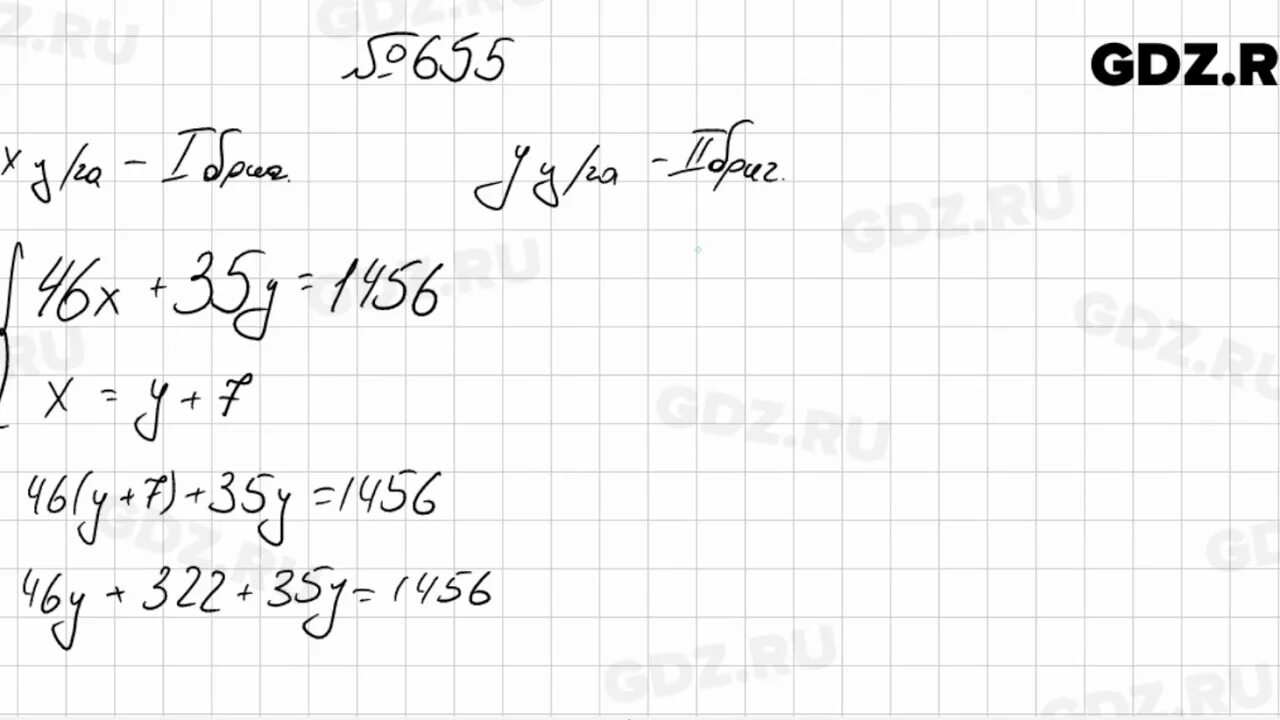 №655
GDZ.R
x ц/га - I бриг. y ц/га - II бриг.
46x + 35y = 1456
x = y + 7
46(y+7)+35y =1456
46y + 322 + 35y = 1456
GDZ.RU
GDZ.RU
GDZ.RU
GDZ.RU
GDZ.RU
GDZ.RU
GDZ.RU